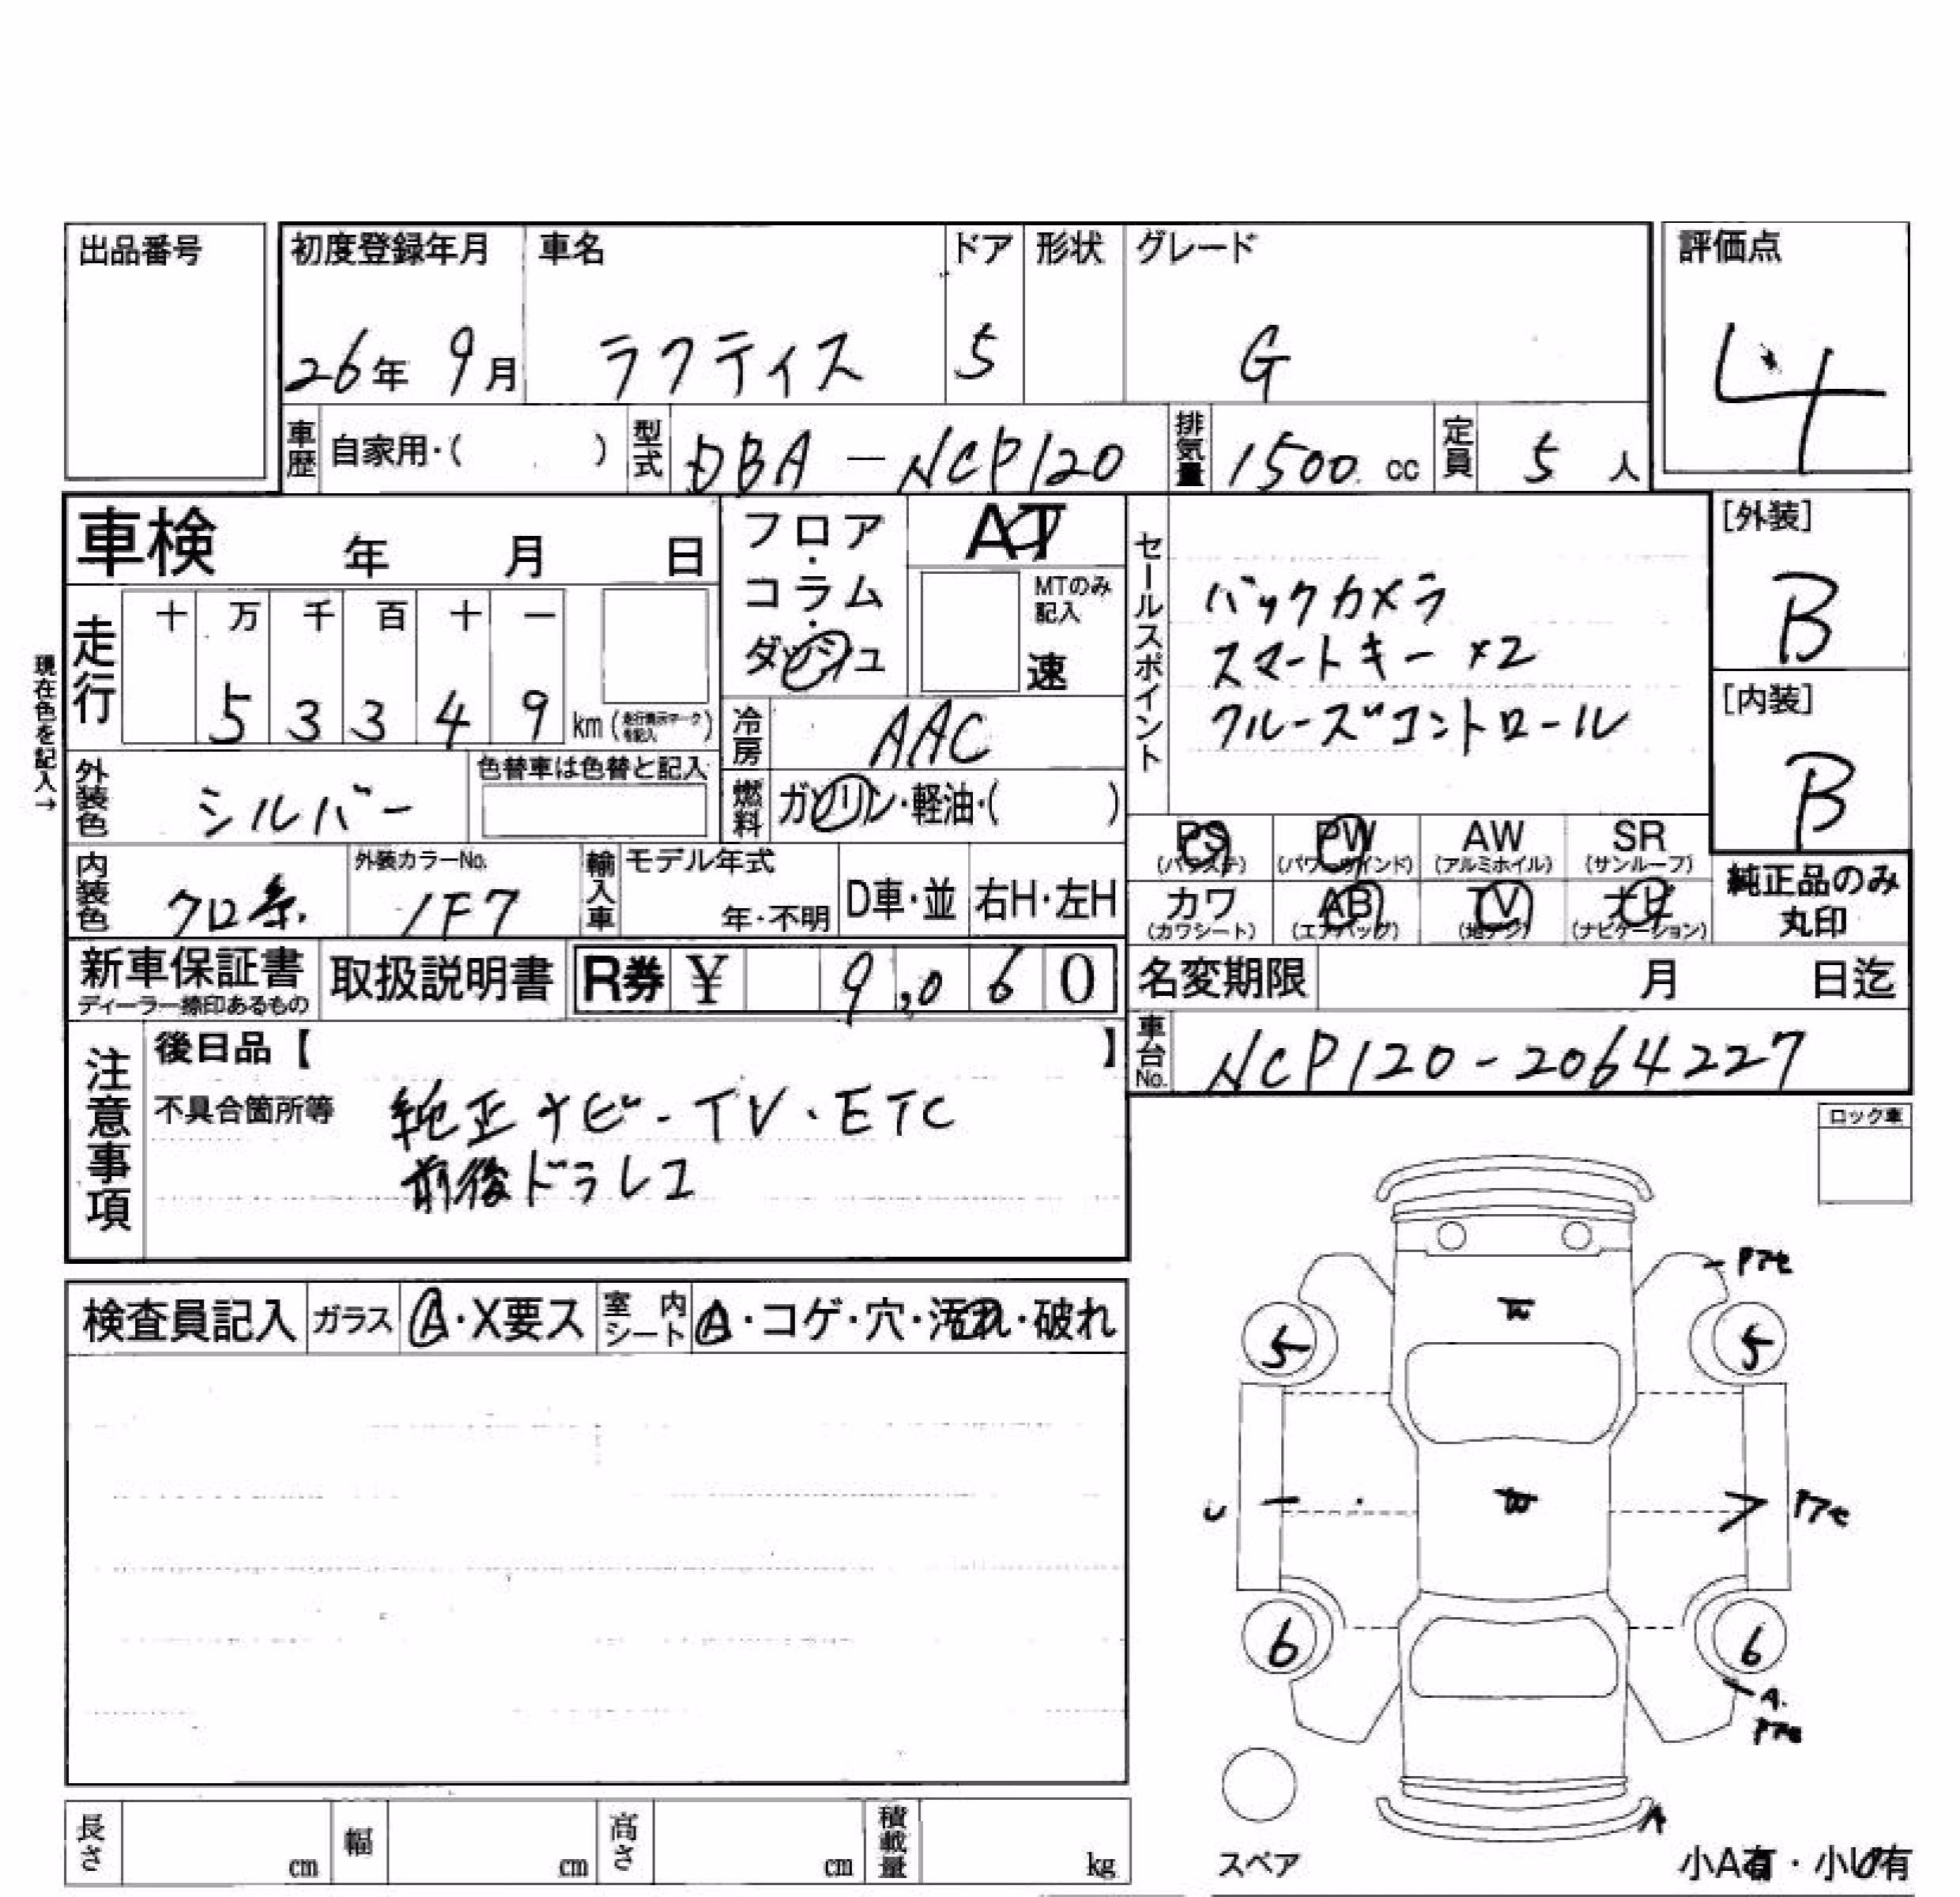 出品番号
初度登録年月 車名 ドア 形状 グレード 評価点
26年 9月 ラクティス 5 G 4
車歴 自家用・( ) 型式 DBA-NCP120 排気量 1500 cc 定員 5 人
車検 年 月 日
フロア・コラム・ダッシュ
AT
MTのみ記入
速
セールスポイント
バックカメラ
スマートキー ×2
クルーズコントロール
[外装]
B
[内装]
B
現在色を記入→
走行 十 万 千 百 十 一
5 3 3 4 9 km (走行表示マークを記入)
冷房 AAC
外装色 シルバー 色替車は色替と記入
燃料 ガソリン・軽油・( )
PS (パワステ) PW (パワーウインド) AW (アルミホイル) SR (サンルーフ)
カワ (カワシート) AB (エアバッグ) TV (地デジ) ナビ (ナビゲーション)
純正品のみ丸印
内装色 クロ系 外装カラーNo. 1F7 輸入車 モデル年式 年・不明 D車・並 右H・左H
新車保証書 取扱説明書 R券 ¥ 9,060
ディーラー捺印あるもの
名変期限 月 日迄
車台No. NCP120-2064227
注意事項
後日品【 】
不具合箇所等 純正ナビ-TV・ETC
前後ドラレコ
ロック車
検査員記入 ガラス A・X要ス 室内シート A・コゲ・穴・汚れ・破れ
5 5
U
6 6
A.
A
スペア
小A有・小U有
長さ cm 幅 cm 高さ cm 積載量 kg